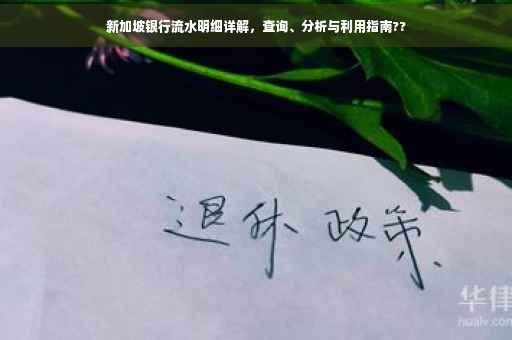 新加坡银行流水明细详解，查询、分析与利用指南??
退休 政策
华律
hualv.com